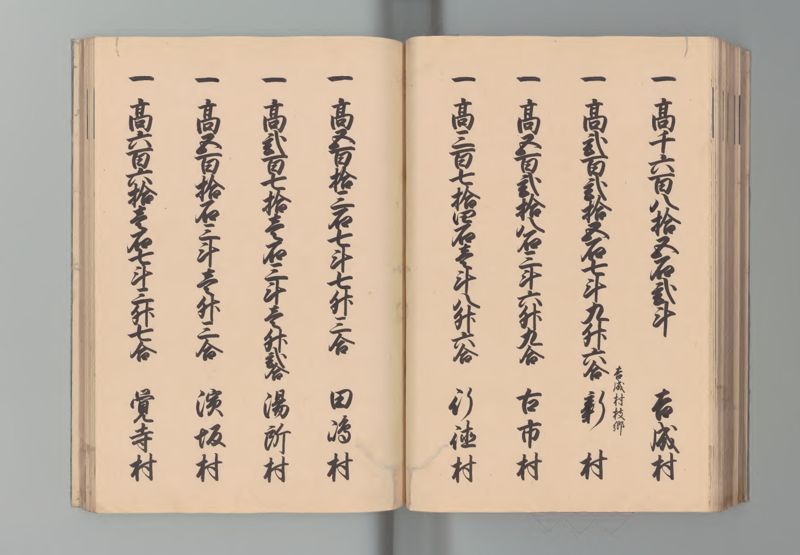 一 高千六百八拾五石弐斗 吉成村
一 高弐百弐拾五石七斗九升六合 吉成村枝郷 新村
一 高五百弐拾八石三斗六升九合 古市村
一 高三百七拾四石壱斗八升六合 行徳村
一 高五百拾三石七斗七升三合 田嶋村
一 高弐百七拾壱石三斗壱升弐合 湯所村
一 高五百拾石三斗壱升三合 濱坂村
一 高六百六拾壱石七斗三升七合 覚寺村